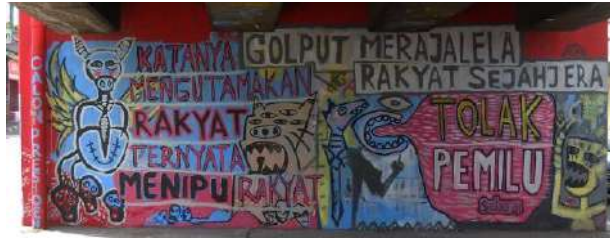 CALON PRESIDEN
KATANYA
MENGUTAMAKAN
RAKYAT
TERNYATA
MENIPU RAKYAT
GOLPUT MERAJALELA
RAKYAT SEJAHJERA
TOLAK
PEMILU